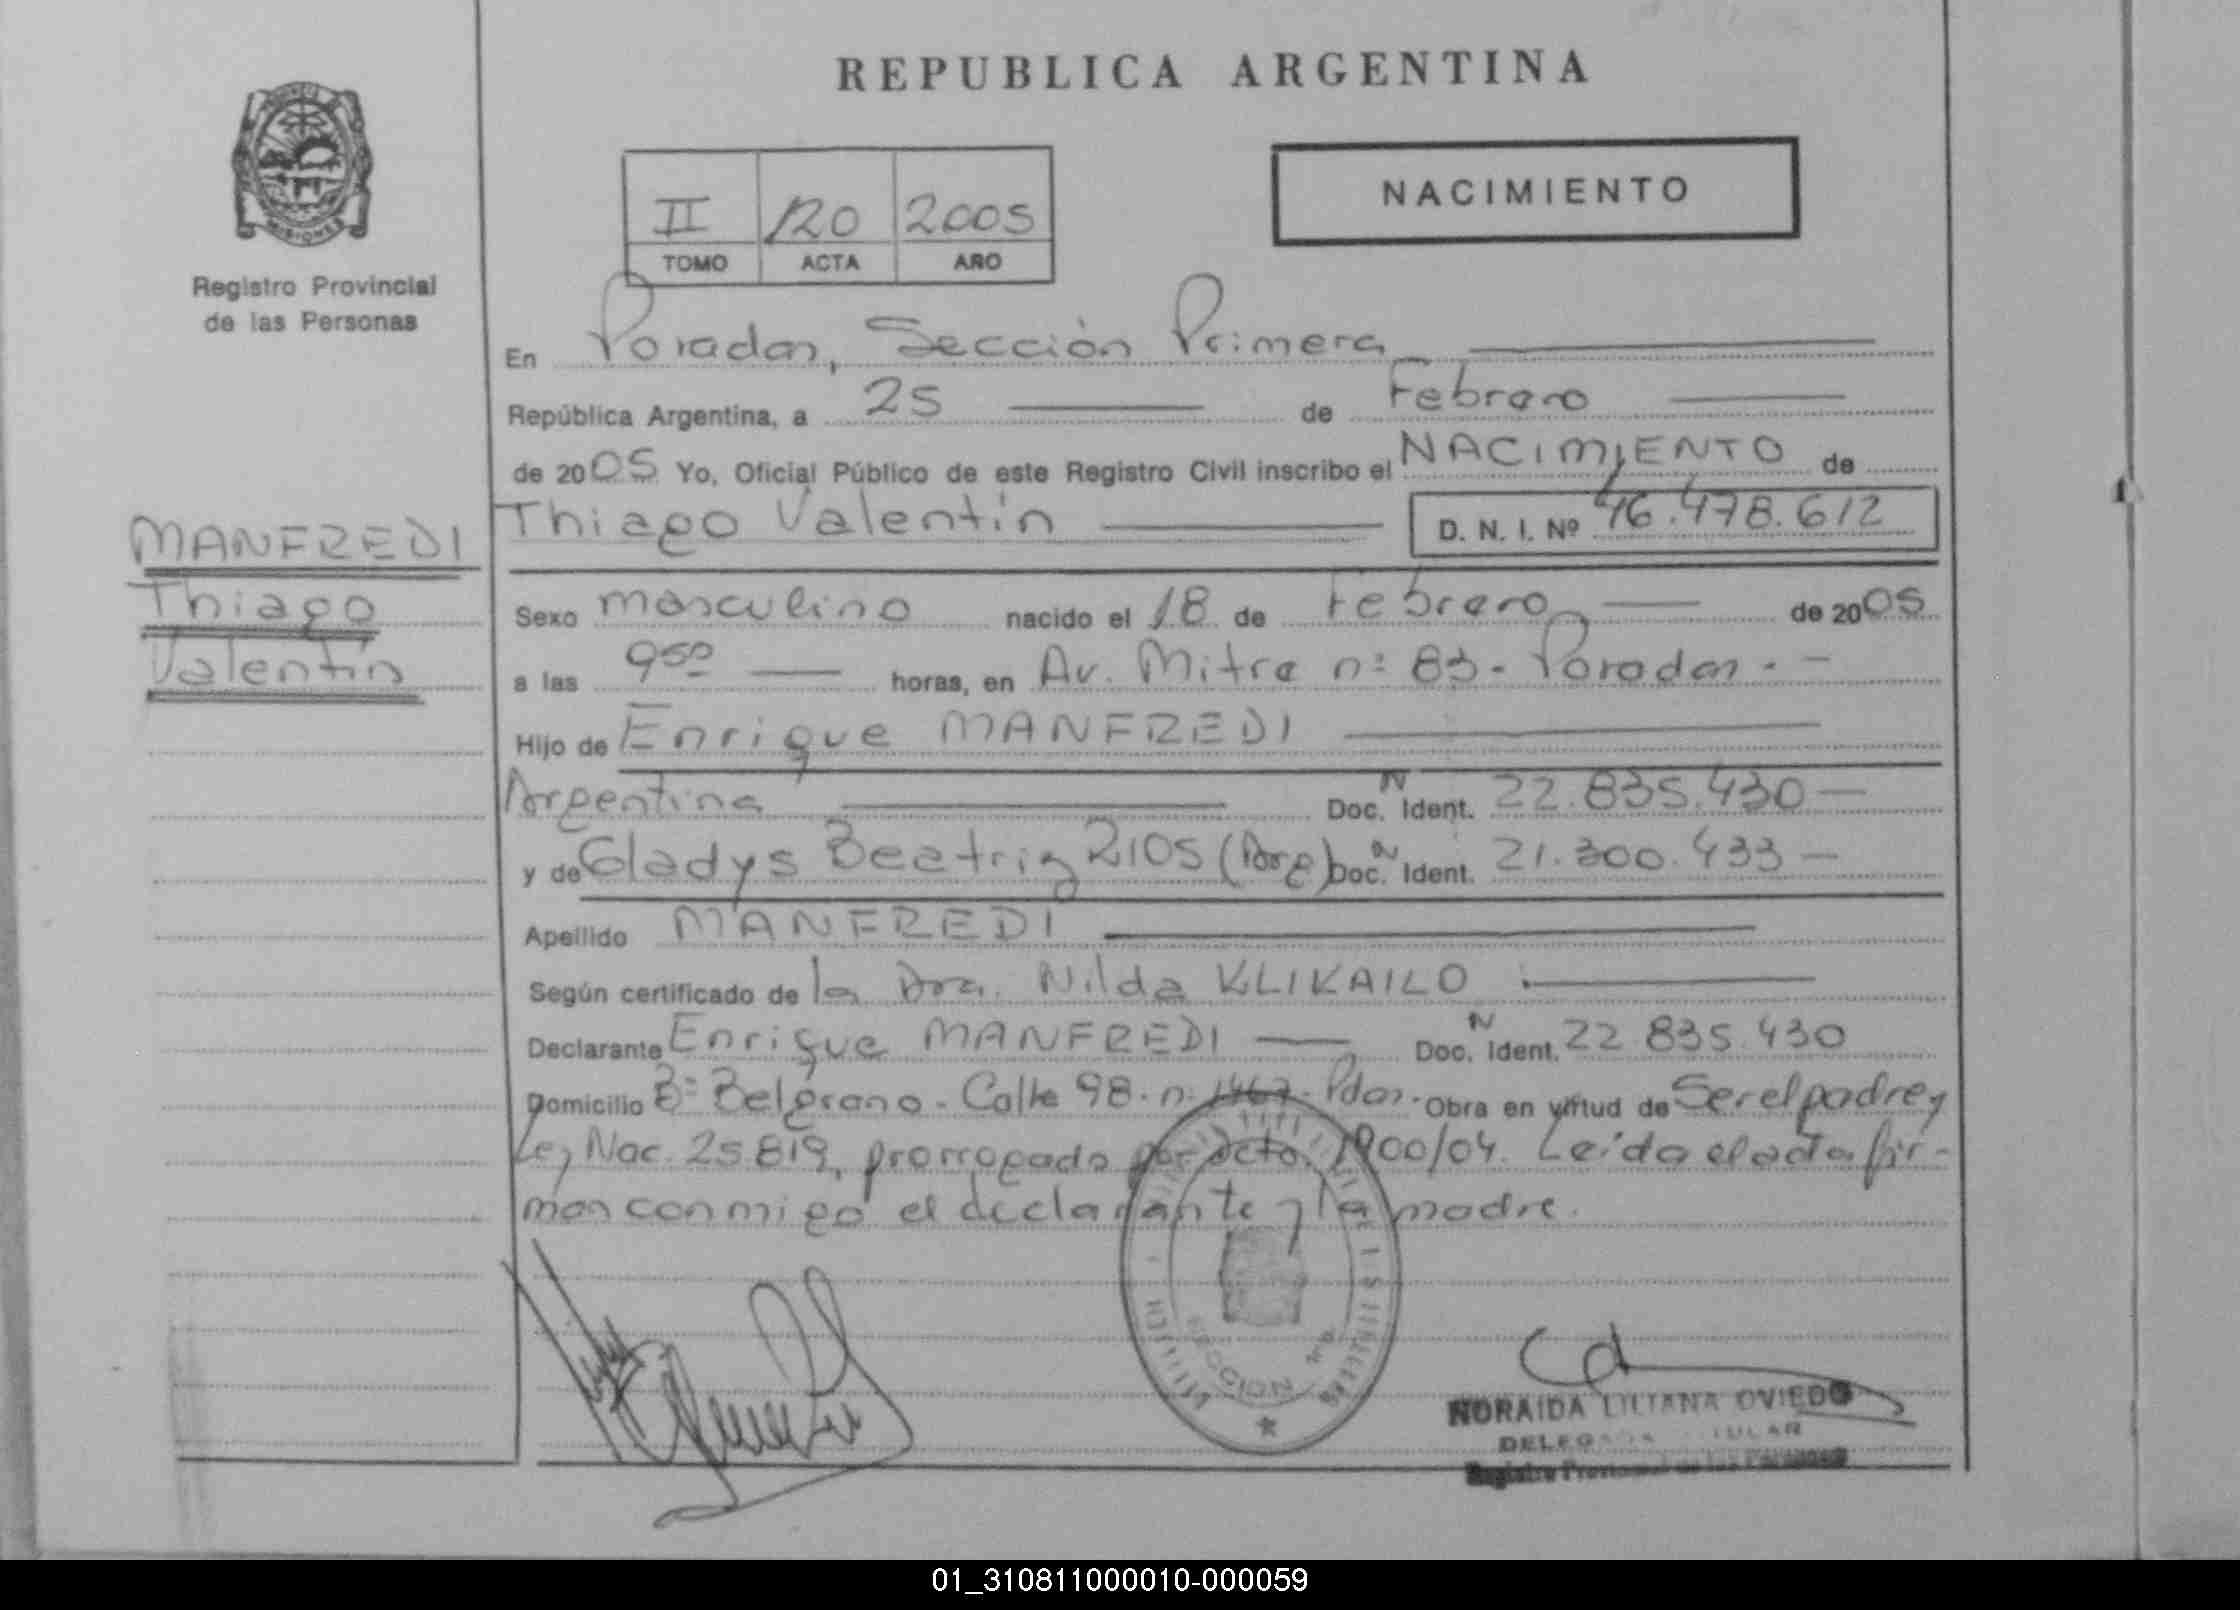 REPUBLICA ARGENTINA
NACIMIENTO
II 120 2005
TOMO ACTA AÑO
MISIONES
Registro Provincial
de las Personas
En Posadas, Sección Primera
República Argentina, a 25 de Febrero
de 2005 Yo, Oficial Público de este Registro Civil inscribo el NACIMIENTO de
Thiago Valentín D. N. I. Nº 46.478.612
MANFREDI
Thiago
Valentín
Sexo masculino nacido el 18 de Febrero de 2005
a las 9:50 horas, en Av. Mitre nº 83 - Posadas. -
Hijo de Enrique MANFREDI
Argentina Doc. N Ident. 22.835.430 —
y de Gladys Beatriz RIOS (Arg) Doc. N Ident. 21.300.433 —
Apellido MANFREDI
Según certificado de la Dra. Nilda KLIKAILO
Declarante Enrique MANFREDI Doc. N Ident. 22 835.430
Domicilio Bº Belgrano - Calle 98 - n: 1467 - Pdas. Obra en virtud de Ser el padre y
Ley Nac. 25.819, prorrogado por Dcto. 1900/04. Leída el acta fir-
man conmigo el declarante y la madre.
SECCION 1ra.
NORAIDA LILIANA OVIEDO
DELEGADA TITULAR
Registro Provincial de las Personas
01_310811000010-000059